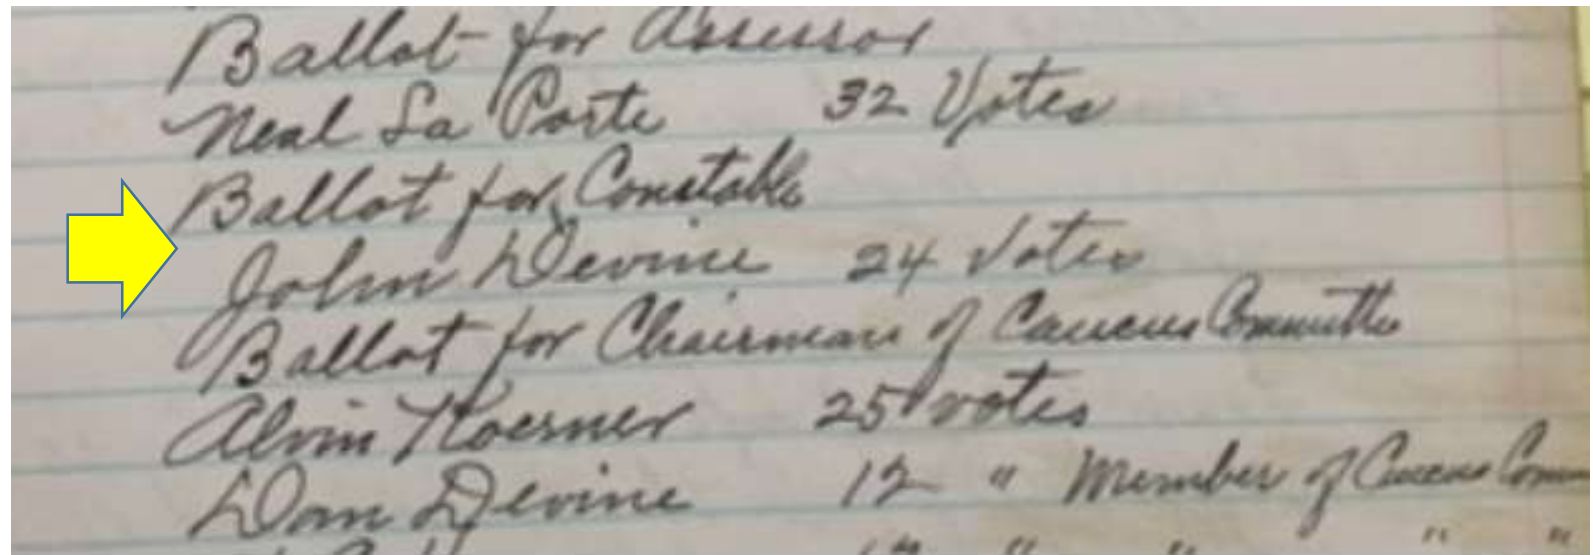 Ballot for Assessor
Neal La Porte 32 Votes
Ballot for Constable
John Devine 24 Votes
Ballot for Chairman of Caucus Committee
Alvin Koerner 25 votes
Dan Devine 12 " Member of Caucus Comm
" " "